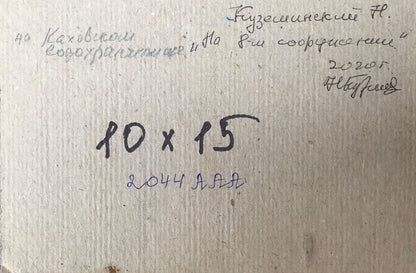 Кузешинский Н.
на Каховском
водохранилище
„На 8-м сооружении“
2020 г.
10 x 15
2044 ААА